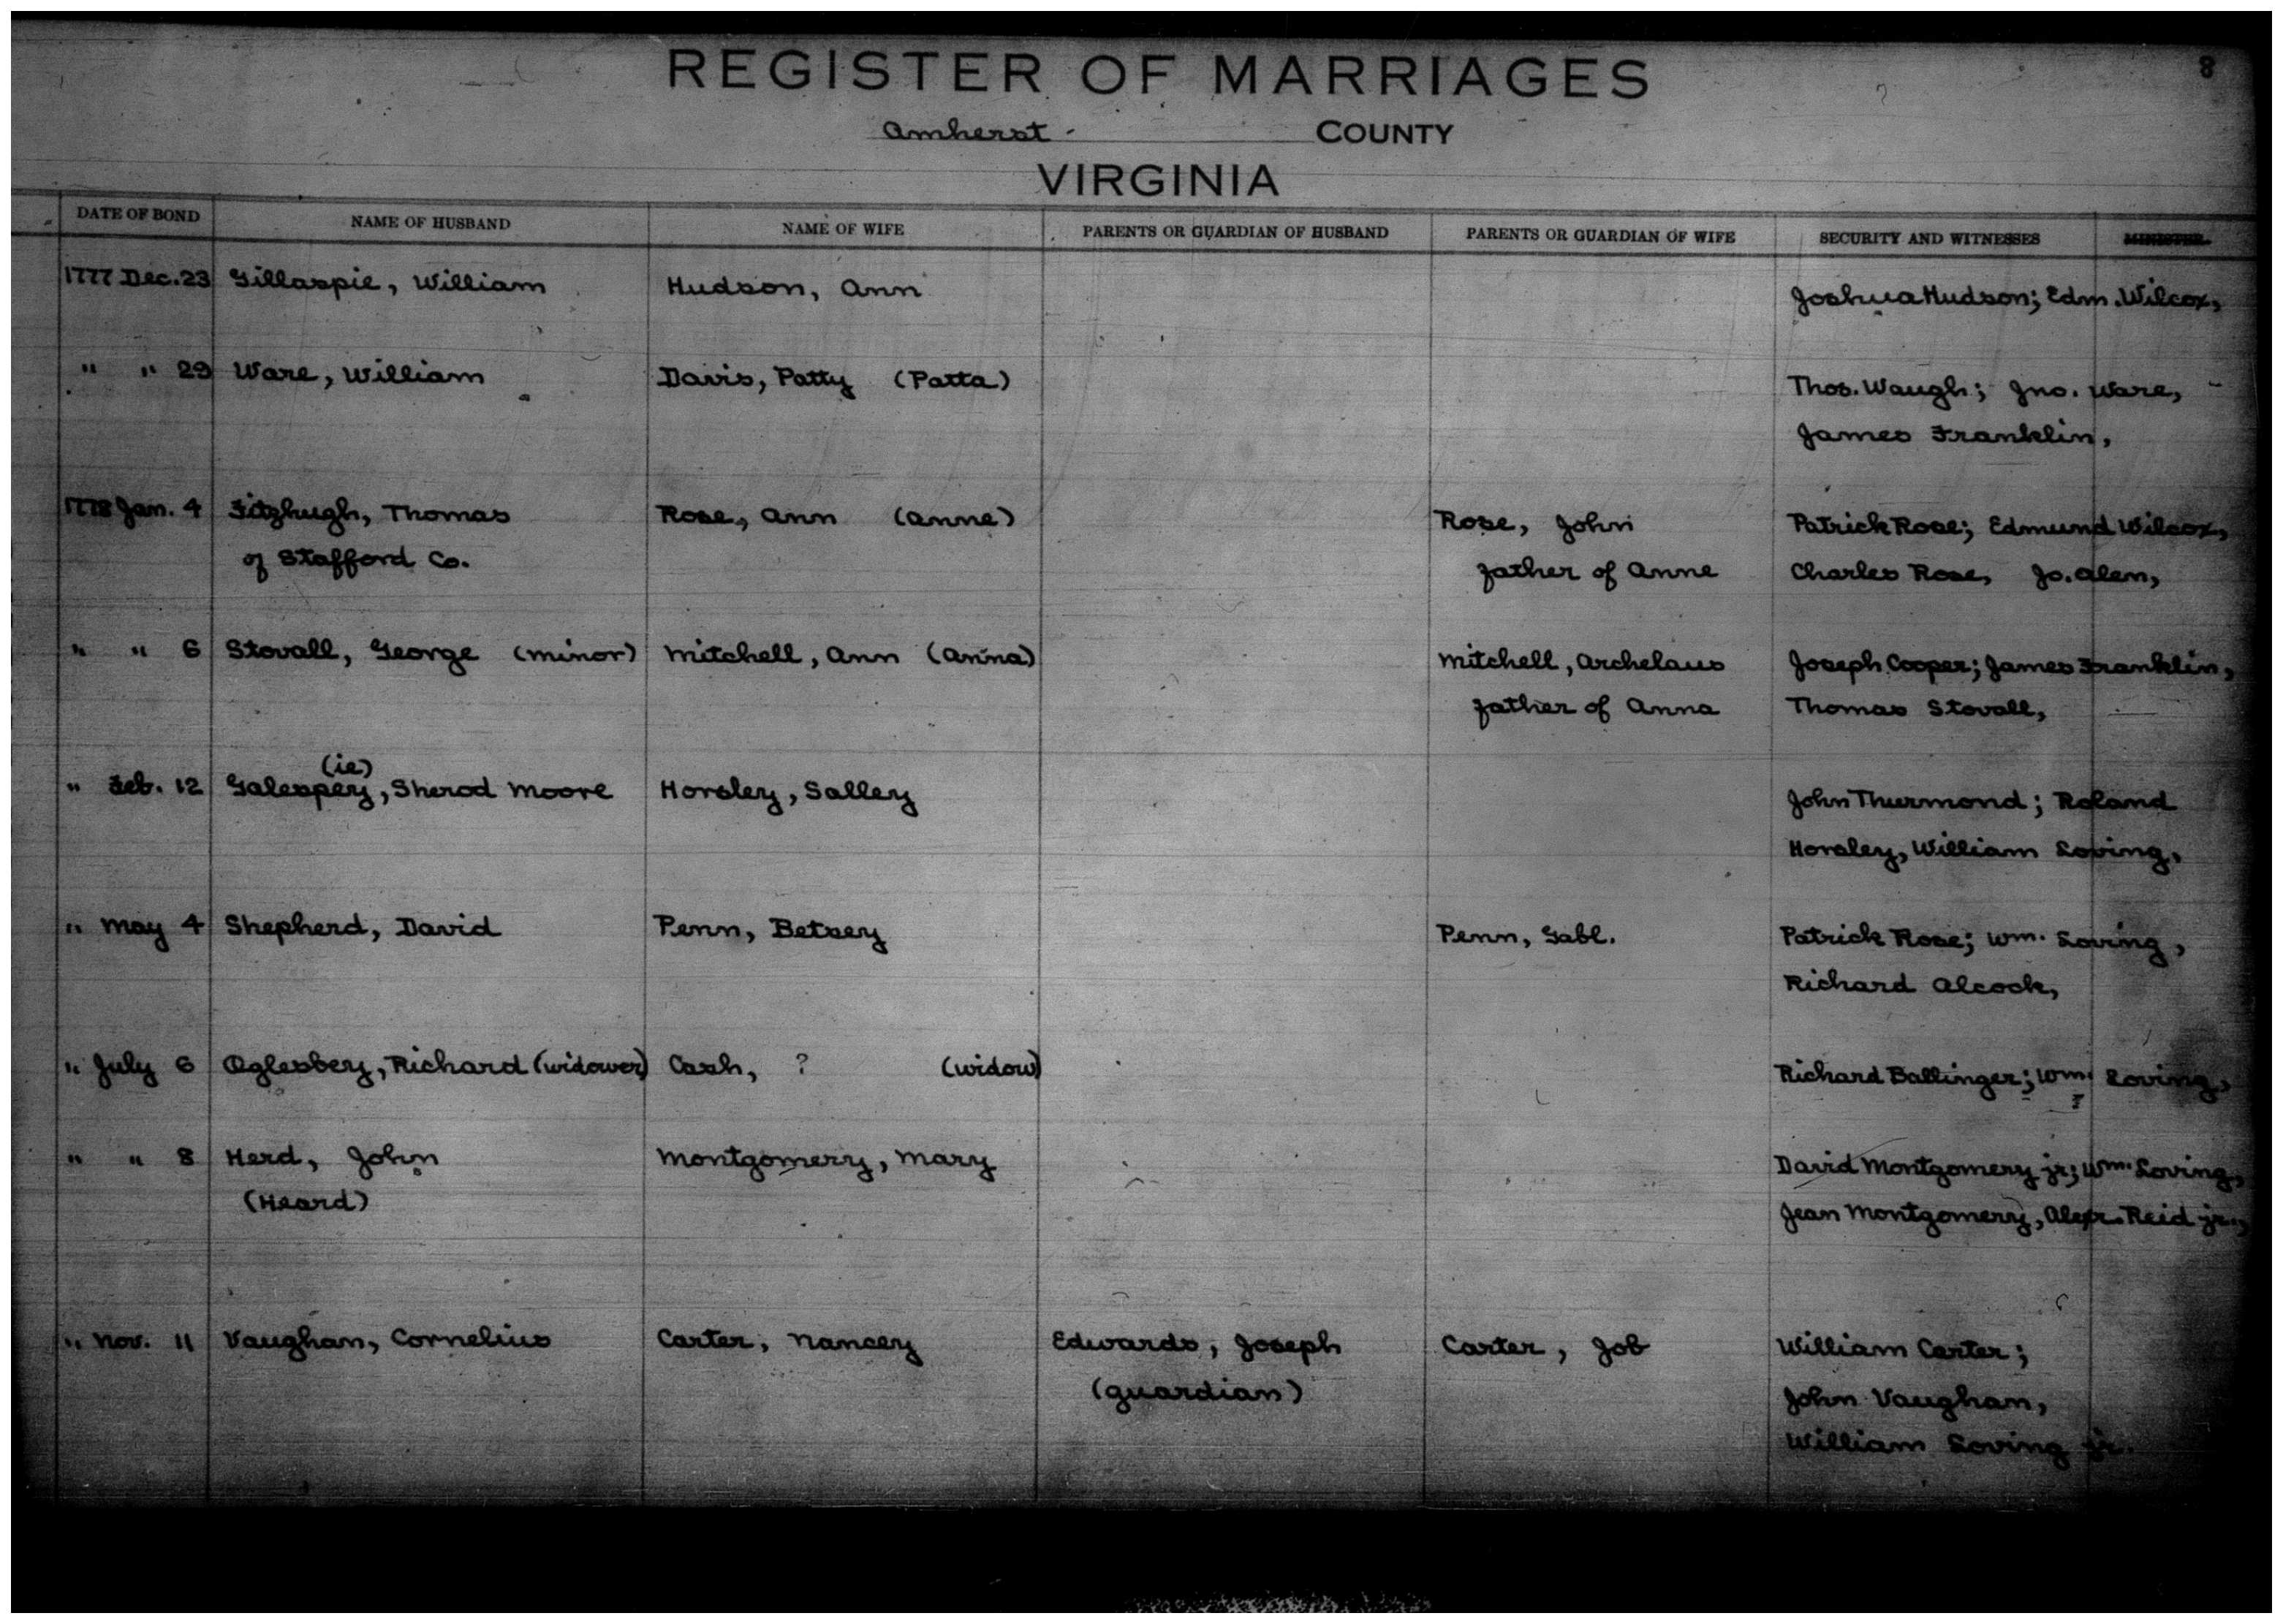 8
REGISTER OF MARRIAGES
Amherst COUNTY
VIRGINIA
DATE OF BOND NAME OF HUSBAND NAME OF WIFE PARENTS OR GUARDIAN OF HUSBAND PARENTS OR GUARDIAN OF WIFE SECURITY AND WITNESSES MINISTER.
1777 Dec. 23 Gillaspie, William Hudson, Ann Joshua Hudson; Edm. Wilcox,
" " 29 Ware, William Davis, Patty (Patta) Thos. Waugh; Jno. Ware,
James Franklin,
1778 Jan. 4 Fitzhugh, Thomas Rose, Ann (Anne) Rose, John Patrick Rose; Edmund Wilcox,
of Stafford Co. father of Anne Charles Rose, Jo. Alen,
" " 6 Stovall, George (minor) Mitchell, Ann (Anna) Mitchell, Archelaus Joseph Cooper; James Franklin,
father of Anna Thomas Stovall,
(ie)
" Feb. 12 Galespey, Sherod Moore Horsley, Salley John Thurmond; Roland
Horsley, William Loving,
" May 4 Shepherd, David Penn, Betsey Penn, Gabl. Patrick Rose; Wm. Loving,
Richard Alcock,
" July 6 Oglesbey, Richard (widower) Cash, ? (widow) Richard Ballinger; Wm. Loving,
?
" " 8 Herd, John Montgomery, Mary David Montgomery jr; Wm. Loving,
(Heard) Jean Montgomery, Alexr. Reid jr.,
" Nov. 11 Vaughan, Cornelius Carter, Nancey Edwards, Joseph Carter, Job William Carter;
(guardian) John Vaughan,
William Loving jr.